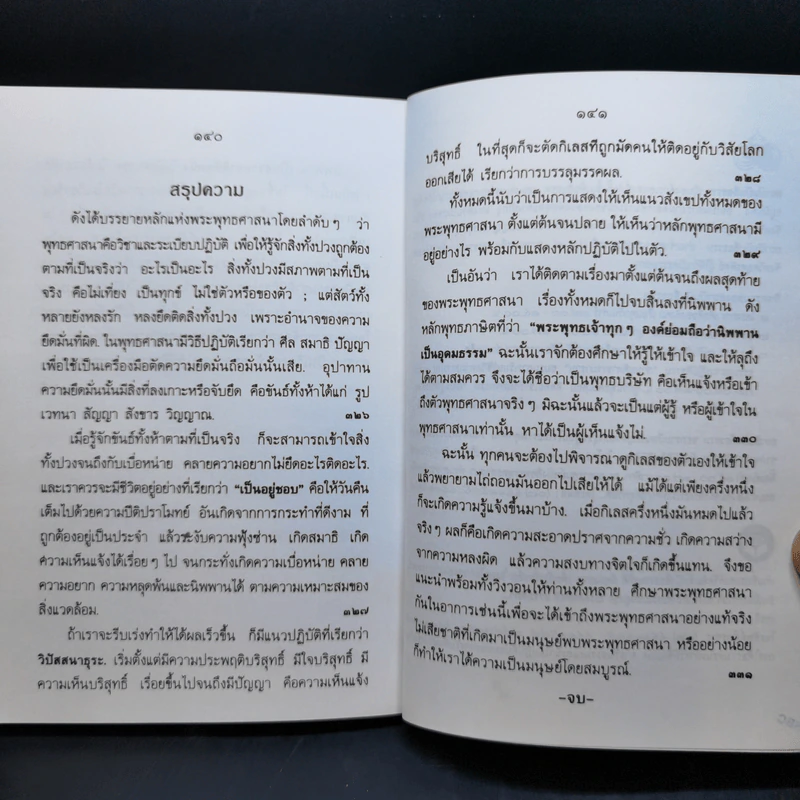 ๑๔๐
สรุปความ
ดังได้บรรยายหลักแห่งพระพุทธศาสนาโดยลำดับ ๆ ว่า
พุทธศาสนาคือวิชาและระเบียบปฏิบัติ เพื่อให้รู้จักสิ่งทั้งปวงถูกต้อง
ตามที่เป็นจริงว่า อะไรเป็นอะไร สิ่งทั้งปวงมีสภาพตามที่เป็น
จริง คือไม่เที่ยง เป็นทุกข์ ไม่ใช่ตัวหรือของตัว ; แต่สัตว์ทั้ง
หลายยังหลงรัก หลงยึดติดสิ่งทั้งปวง เพราะอำนาจของความ
ยึดมั่นที่ผิด. ในพุทธศาสนามีวิธีปฏิบัติเรียกว่า ศีล สมาธิ ปัญญา
เพื่อใช้เป็นเครื่องมือตัดความยึดมั่นถือมั่นนั้นเสีย. อุปาทาน
ความยึดมั่นนั้นมีสิ่งที่ลงเกาะหรือจับยึด คือขันธ์ทั้งห้าได้แก่ รูป
เวทนา สัญญา สังขาร วิญญาณ. ๓๒๖
เมื่อรู้จักขันธ์ทั้งห้าตามที่เป็นจริง ก็จะสามารถเข้าใจสิ่ง
ทั้งปวงจนถึงกับเบื่อหน่าย คลายความอยากไม่ยึดอะไรติดอะไร.
และเราควรจะมีชีวิตอยู่อย่างที่เรียกว่า “เป็นอยู่ชอบ” คือให้วันคืน
เต็มไปด้วยความปีติปราโมทย์ อันเกิดจากการกระทำที่ดีงาม ที่
ถูกต้องอยู่เป็นประจำ แล้วระงับความฟุ้งซ่าน เกิดสมาธิ เกิด
ความเห็นแจ้งได้เรื่อยๆ ไป จนกระทั่งเกิดความเบื่อหน่าย คลาย
ความอยาก ความหลุดพ้นและนิพพานได้ ตามความเหมาะสมของ
สิ่งแวดล้อม. ๓๒๗
ถ้าเราจะรีบเร่งทำให้ได้ผลเร็วขึ้น ก็มีแนวปฏิบัติที่เรียกว่า
วิปัสสนาธุระ. เริ่มตั้งแต่มีความประพฤติบริสุทธิ์ มีใจบริสุทธิ์ มี
ความเห็นบริสุทธิ์ เรื่อยขึ้นไปจนถึงมีปัญญา คือความเห็นแจ้ง
๑๔๑
บริสุทธิ์ ในที่สุดก็จะตัดกิเลสที่ถูกมัดคนให้ติดอยู่กับวิสัยโลก
ออกเสียได้ เรียกว่าการบรรลุมรรคผล. ๓๒๘
ทั้งหมดนี้นับว่าเป็นการแสดงให้เห็นแนวสังเขปทั้งหมดของ
พระพุทธศาสนา ตั้งแต่ต้นจนปลาย ให้เห็นว่าหลักพุทธศาสนามี
อยู่อย่างไร พร้อมกับแสดงหลักปฏิบัติไปในตัว. ๓๒๙
เป็นอันว่า เราได้ติดตามเรื่องมาตั้งแต่ต้นจนถึงผลสุดท้าย
ของพระพุทธศาสนา เรื่องทั้งหมดก็ไปจบสิ้นลงที่นิพพาน ดัง
หลักพุทธภาษิตที่ว่า “พระพุทธเจ้าทุก ๆ องค์ย่อมถือว่านิพพาน
เป็นอุดมธรรม” ฉะนั้นเราจักต้องศึกษาให้รู้ให้เข้าใจ และให้ลุถึง
ได้ตามสมควร จึงจะได้ชื่อว่าเป็นพุทธบริษัท คือเห็นแจ้งหรือเข้า
ถึงตัวพุทธศาสนาจริงๆ มิฉะนั้นแล้วจะเป็นแต่ผู้รู้ หรือผู้เข้าใจใน
พุทธศาสนาเท่านั้น หาได้เป็นผู้เห็นแจ้งไม่. ๓๓๐
ฉะนั้น ทุกคนจะต้องไปพิจารณาดูกิเลสของตัวเองให้เข้าใจ
แล้วพยายามไถ่ถอนมันออกไปเสียให้ได้ แม้ได้แต่เพียงครึ่งหนึ่ง
ก็จะเกิดความรู้แจ้งขึ้นมาบ้าง. เมื่อกิเลสครึ่งหนึ่งมันหมดไปแล้ว
จริงๆ ผลก็คือเกิดความสะอาดปราศจากความชั่ว เกิดความสว่าง
จากความหลงผิด แล้วความสงบทางจิตใจก็เกิดขึ้นแทน. จึงขอ
แนะนำพร้อมทั้งวิงวอนให้ท่านทั้งหลาย ศึกษาพระพุทธศาสนา
กันในอาการเช่นนี้เพื่อจะได้เข้าถึงพระพุทธศาสนาอย่างแท้จริง
ไม่เสียชาติที่เกิดมาเป็นมนุษย์พบพระพุทธศาสนา หรืออย่างน้อย
ก็ทำให้เราได้ความเป็นมนุษย์โดยสมบูรณ์. ๓๓๑
-จบ-